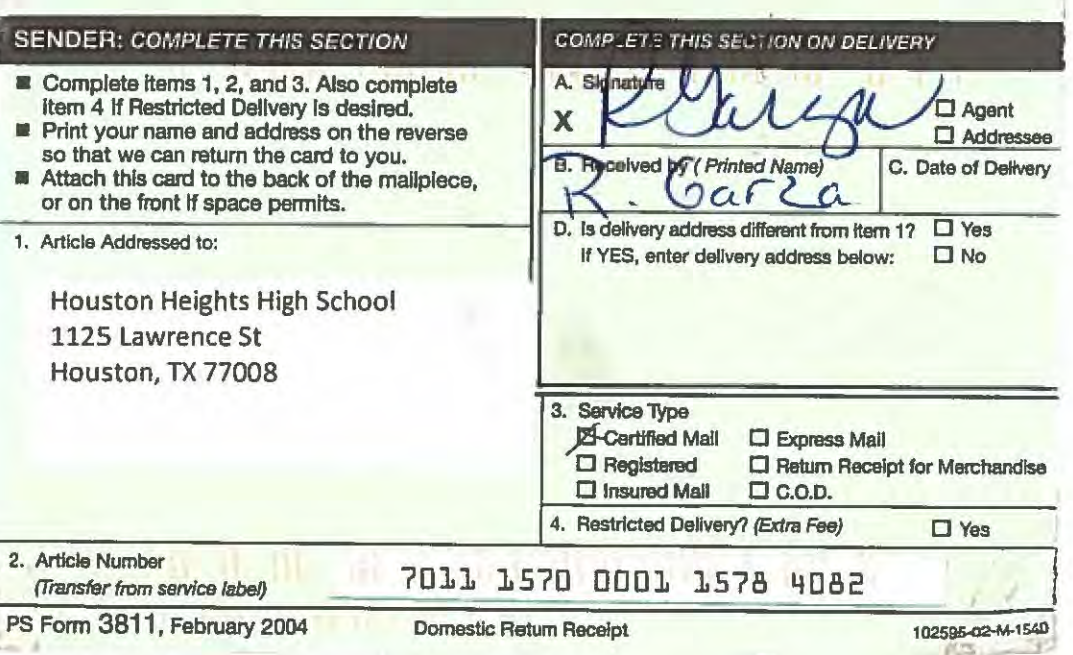 SENDER: COMPLETE THIS SECTION
■ Complete items 1, 2, and 3. Also complete
item 4 if Restricted Delivery is desired.
■ Print your name and address on the reverse
so that we can return the card to you.
■ Attach this card to the back of the mailpiece,
or on the front if space permits.
1. Article Addressed to:
Houston Heights High School
1125 Lawrence St
Houston, TX 77008
COMPLETE THIS SECTION ON DELIVERY
A. Signature
X R Garza
☐ Agent
☐ Addressee
B. Received by (Printed Name)
R. Garza
C. Date of Delivery
D. Is delivery address different from item 1? ☐ Yes
If YES, enter delivery address below: ☐ No
3. Service Type
☒ Certified Mail ☐ Express Mail
☐ Registered ☐ Return Receipt for Merchandise
☐ Insured Mail ☐ C.O.D.
4. Restricted Delivery? (Extra Fee) ☐ Yes
2. Article Number
(Transfer from service label)
7011 1570 0001 1578 4082
PS Form 3811, February 2004 Domestic Return Receipt 102595-02-M-1540